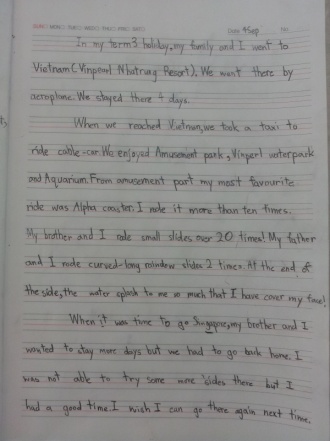 Date 4Sep No.
In my term3 holiday, my family and I went to
Vietnam (Vinpearl Nhatrung Resort). We want there by
aeroplane. We stayed there 4 days.
When we reached Vietnam, we took a taxi to
ride cable-car. We enjoyed Amusement park, Vinperl waterpark
and Aquarium. From amusement part my most favourite
ride was Alpha coaster. I rode it more than ten times.
My brother and I rode small slides over 20 times! My father
and I rode curved-long rainbow slides 2 times. At the end of
the side, the water splash to me so much that I have cover my face!
When it was time to go Singapore, my brother and I
wanted to stay more days but we had to go back home. I
was not able to try some more slides there but I
had a good time. I wish I can go there again next time.